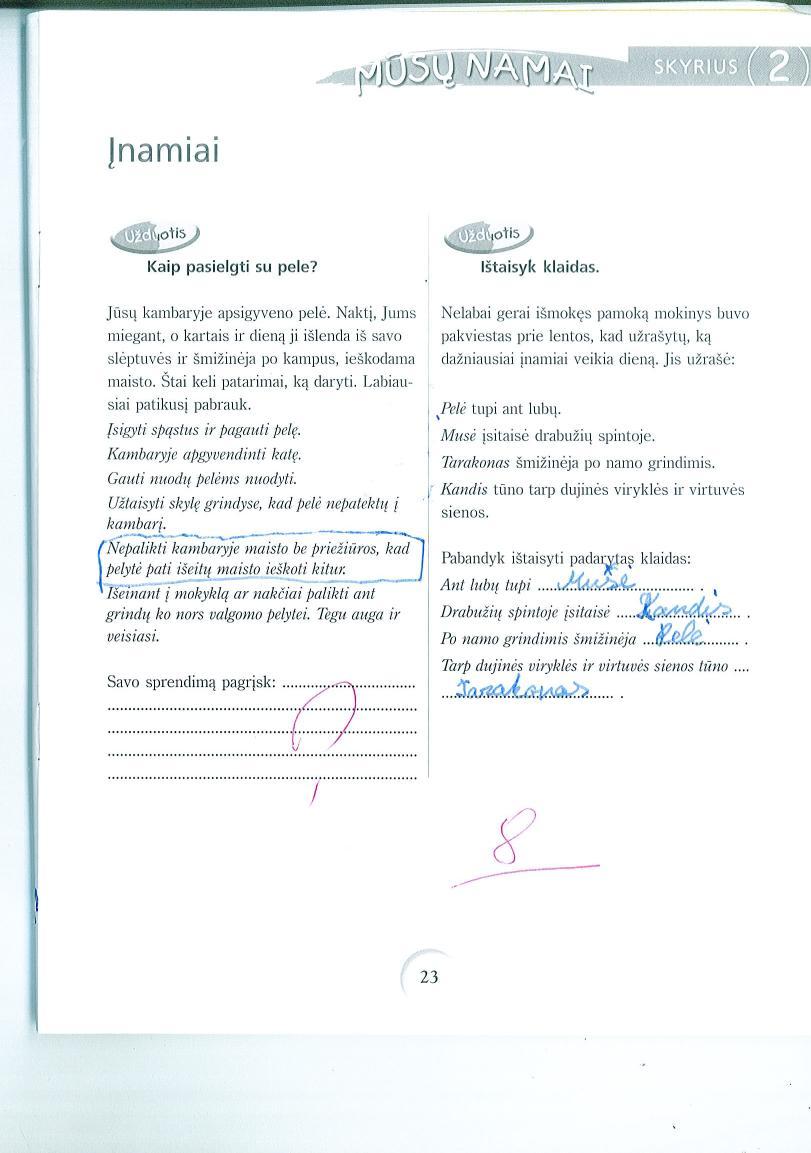 MŪSŲ NAMAI
SKYRIUS 2
Įnamiai
Užduotis
Kaip pasielgti su pele?
Jūsų kambaryje apsigyveno pelė. Naktį, Jums
miegant, o kartais ir dieną ji išlenda iš savo
slėptuvės ir šmižinėja po kampus, ieškodama
maisto. Štai keli patarimai, ką daryti. Labiau-
siai patikusį pabrauk.
Įsigyti spąstus ir pagauti pelę.
Kambaryje apgyvendinti katę.
Gauti nuodų pelėms nuodyti.
Užtaisyti skylę grindyse, kad pelė nepatektų į
kambarį.
Nepalikti kambaryje maisto be priežiūros, kad
pelytė pati išeitų maisto ieškoti kitur.
Išeinant į mokyklą ar nakčiai palikti ant
grindų ko nors valgomo pelytei. Tegu auga ir
veisiasi.
Savo sprendimą pagrįsk: ..............................
Užduotis
Ištaisyk klaidas.
Nelabai gerai išmokęs pamoką mokinys buvo
pakviestas prie lentos, kad užrašytų, ką
dažniausiai įnamiai veikia dieną. Jis užrašė:
Pelė tupi ant lubų.
Musė įsitaisė drabužių spintoje.
Tarakonas šmižinėja po namo grindimis.
Kandis tūno tarp dujinės viryklės ir virtuvės
sienos.
Pabandyk ištaisyti padarytas klaidas:
Ant lubų tupi Mušė .
Drabužių spintoje įsitaisė Kandis .
Po namo grindimis šmižinėja Pelė .
Tarp dujinės viryklės ir virtuvės sienos tūno ....
Tarakonas .
8
23